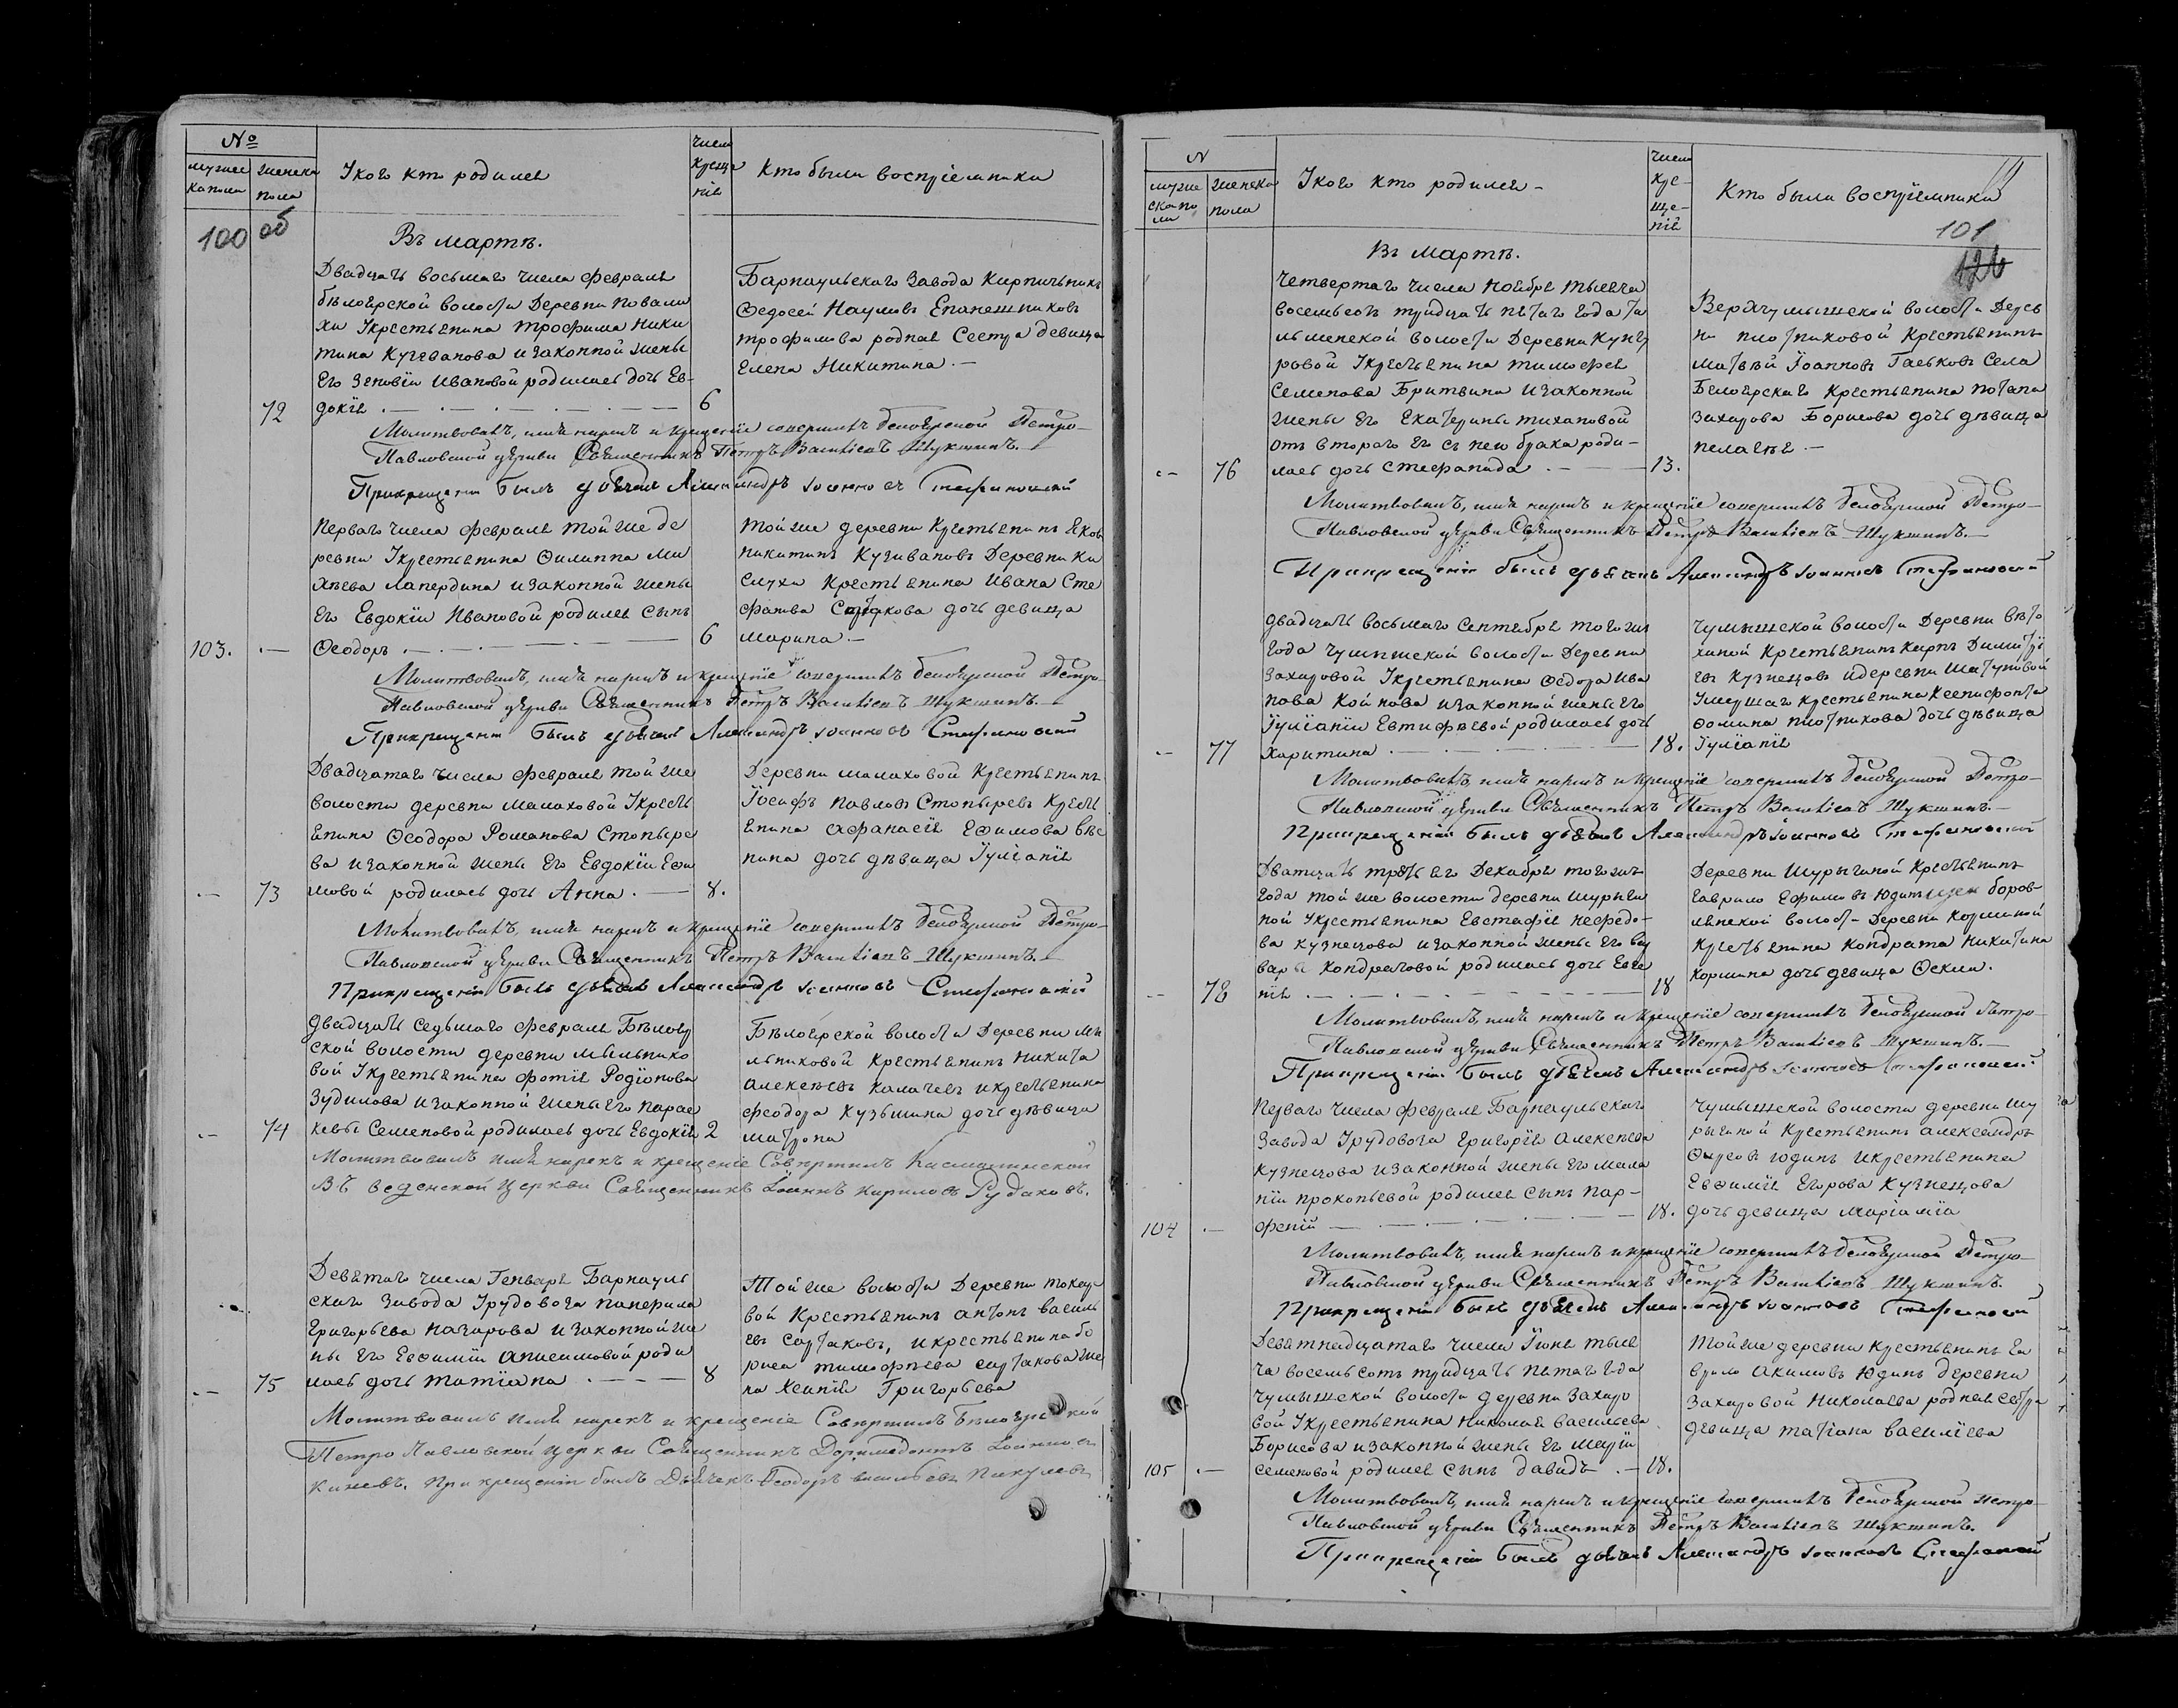 №
мужес
ка пола
женска
пола
У кого кто родился
число
креще
нія
Кто были воспріемники
100 об
Въ мартѣ.
Двадцать восьмаго числа февраля
бѣлоярской волости Деревни повали
хи Укрестьянина трофима Ники
тина Кугеванова и законной жены
Его Зеновіи Ивановой родилась дочь Ев-
72
докія
6
Барнаульскаго завода Кирпичьникъ
Ѳедосей Наумовъ Епанешниковъ
трофимова родная Сестра девица
Елена Никитина. —
Молитвовалъ, имя нарекъ и крещеніе совершилъ белоярской Петро-
Павловской церкви Священникъ Петръ Василіевъ Шукшинъ.
При крещеніи былъ дьячекъ Александръ Іоанновъ Стефановскій
перваго числа февраля той же де
ревни Укрестьянина Филиппа Ми
хѣева лапердина и законной жены
Его Евдокіи Ивановой родился сынъ
103. —
Ѳеодоръ
6
той же деревни крестьянинъ Яковъ
никитинъ Кугивановъ Деревни Ка
слухи Крестьянина Ивана Сте
фанова дочь девица
марина —
Молитвовалъ, имя нарекъ и крещеніе совершилъ белоярской Петро-
Павловской церкви Священникъ Петръ Василіевъ Шукшинъ.
При крещеніи былъ дьячекъ Александръ Іоанновъ Стефановскій
Двадцатаго числа февраля той же
волости деревни малаховой Укресть
янина Ѳеодора Романова Стопыре
ва и законной жены Его Евдокіи Ефи
— 73
мовой родилась дочь Анна. —
8.
Деревни малаховой Крестьянинъ
Іосифъ Павловъ Стопыревъ Кресть
янина Афанасія Ефимова Вяс
нина дочь дѣвица Іуліанія
Молитвовалъ, имя нарекъ и крещеніе совершилъ белоярской Петро-
Павловской церкви Священникъ Петръ Василіевъ Шукшинъ.
При крещеніи былъ дьячекъ Александръ Іоанновъ Стефановскій
двадцать седьмаго февраля Бѣлояр
ской волости деревни мыльнико
вой Укрестьянина фотія Родіонова
Зудилова и законной жены его парас
— 74
кевы Семеновой родилась дочь Евдокія
2
Бѣлоярской волости Деревни мы
льниковой Крестьянинъ Никита
алексеевъ Калачевъ и крестьянина
феодора Кузьмина дочь дѣвица
матрона
Молитвовалъ имя нарекъ и крещеніе Совершилъ Касмалинской
Введенской церкви Священникъ Іоаннъ Кириловъ Рудаковъ.
Девятаго числа Генваря Барнауль
скаго завода Урудовоза панфила
Григорьева назарова и законной же
ны его Евфиміи анисимовой роди
— 75
лась дочь татіана
8
Той же волости Деревни токаре
вой Крестьянинъ антонъ василь
евъ Сартаковъ, и крестьянина бо
риса тимофѣева сартакова же
на Ксанія Григорьева
Молитвовалъ имя нарекъ и крещеніе Совершилъ Бѣлоярской
Петро Павловской церкви Священникъ Доримедонтъ Іоанновъ
При крещеніи былъ Дьячекъ Ѳеодоръ васильевъ
№
муже
ска по
ла
женска
пола
У кого кто родился —
число
кре-
ще-
нія
Кто были воспріемники
101
Въ Мартѣ.
Четвертаго числа ноября тысяча
восемьсотъ тридцать пятаго года та
льменской волости Деревни Кунгу
ровой Укрестьянина тимофея
Семенова Бритвина и законной
жены Его Екатерины тихановой
отъ втораго Его съ нею брака роди-
— 76
лась дочь стефанида
13.
Верхчумышской волости Дерев
ни плотниковой Крестьянинъ
матвѣй Іоанновъ Гаськовъ Села
Белоярскаго Крестьянина потапа
Захарова Борисова дочь дѣвица
пелагея —
Молитвовалъ, имя нарекъ и крещеніе совершилъ белоярской Петро-
Павловской церкви Священникъ Петръ Василіевъ Шукшинъ. —
При крещеніи былъ дьячекъ Александръ Іоанновъ Стефановской
двадцать восьмаго Сентября того жъ
года чумышской волости Деревни
Захаровой Укрестьянина Ѳедора Ива
нова Койнова и законной жены Его
Іуліаніи Евтифѣевой родилась дочь
— 77
Харитина
18.
чумышской волости Деревни вято
хиной Крестьянинъ Карпъ Димитрі
евъ Кузнецовъ и деревни Шатуновой
Умершаго крестьянина Ксенофонта
фомина плотникова дочь дѣвица
Іуліанія
Молитвовалъ, имя нарекъ и крещеніе совершилъ белоярской Петро-
Павловской церкви Священникъ Петръ Василіевъ Шукшинъ. —
При крещеніи былъ дьячекъ Александръ Іоанновъ Стефановской
Дватцать третьяго Декабря того жъ
года той же волости деревни Шурыги
ной Укрестьянина Евстафія нефедо-
ва Кузнецова и законной жены Его Вар
вары Кондратовой родилась дочь Евге
— 78
нія
18
Деревни Шурыгиной Крестьянинъ
Гаврило Ефимовъ Юдинъ боров-
лянской волости Деревни Корминой
крестьянина Кондрата Никитина
Кормина дочь девица Фекла.
Молитвовалъ, имя нарекъ и крещеніе совершилъ белоярской Петро-
Павловской церкви Священникъ Петръ Василіевъ Шукшинъ. —
При крещеніи былъ дьячекъ Александръ Іоанновъ Стефановской
Перваго числа февраля Барнаульскаго
Завода Урудовоза Григорія алексеева
Кузнецова и законной жены Его мела
ніи прокопьевой родился сынъ пар-
104 —
феній
18.
Чумышской волости деревни Шу
рыгиной Крестьянинъ александръ
Фирсовъ юдинъ и крестьянина
Евфимія Егорова Кузнецова
дочь девица маріамія
Молитвовалъ, имя нарекъ и крещеніе совершилъ белоярской Петро-
Павловской церкви Священникъ Петръ Василіевъ Шукшинъ.
При крещеніи былъ дьячекъ Александръ Іоанновъ Стефановской
Девятнадцатаго числа Іюня тыся
ча восемьсотъ тридцать пятаго года
Чумышской волости деревни Захаро
вой Укрестьянина Николая васильева
Борисова и законной жены Его маріи
105 —
семеновой родился сынъ давидъ
18.
той же деревни Крестьянинъ Га
врило Акимовъ Юдинъ деревни
Захаровой Николаева родная Сестра
девица татіана василіева
Молитвовалъ, имя нарекъ и крещеніе совершилъ белоярской Петро-
Павловской церкви Священникъ Петръ Василіевъ Шукшинъ.
При крещеніи былъ дьячекъ Александръ Іоанновъ Стефановской